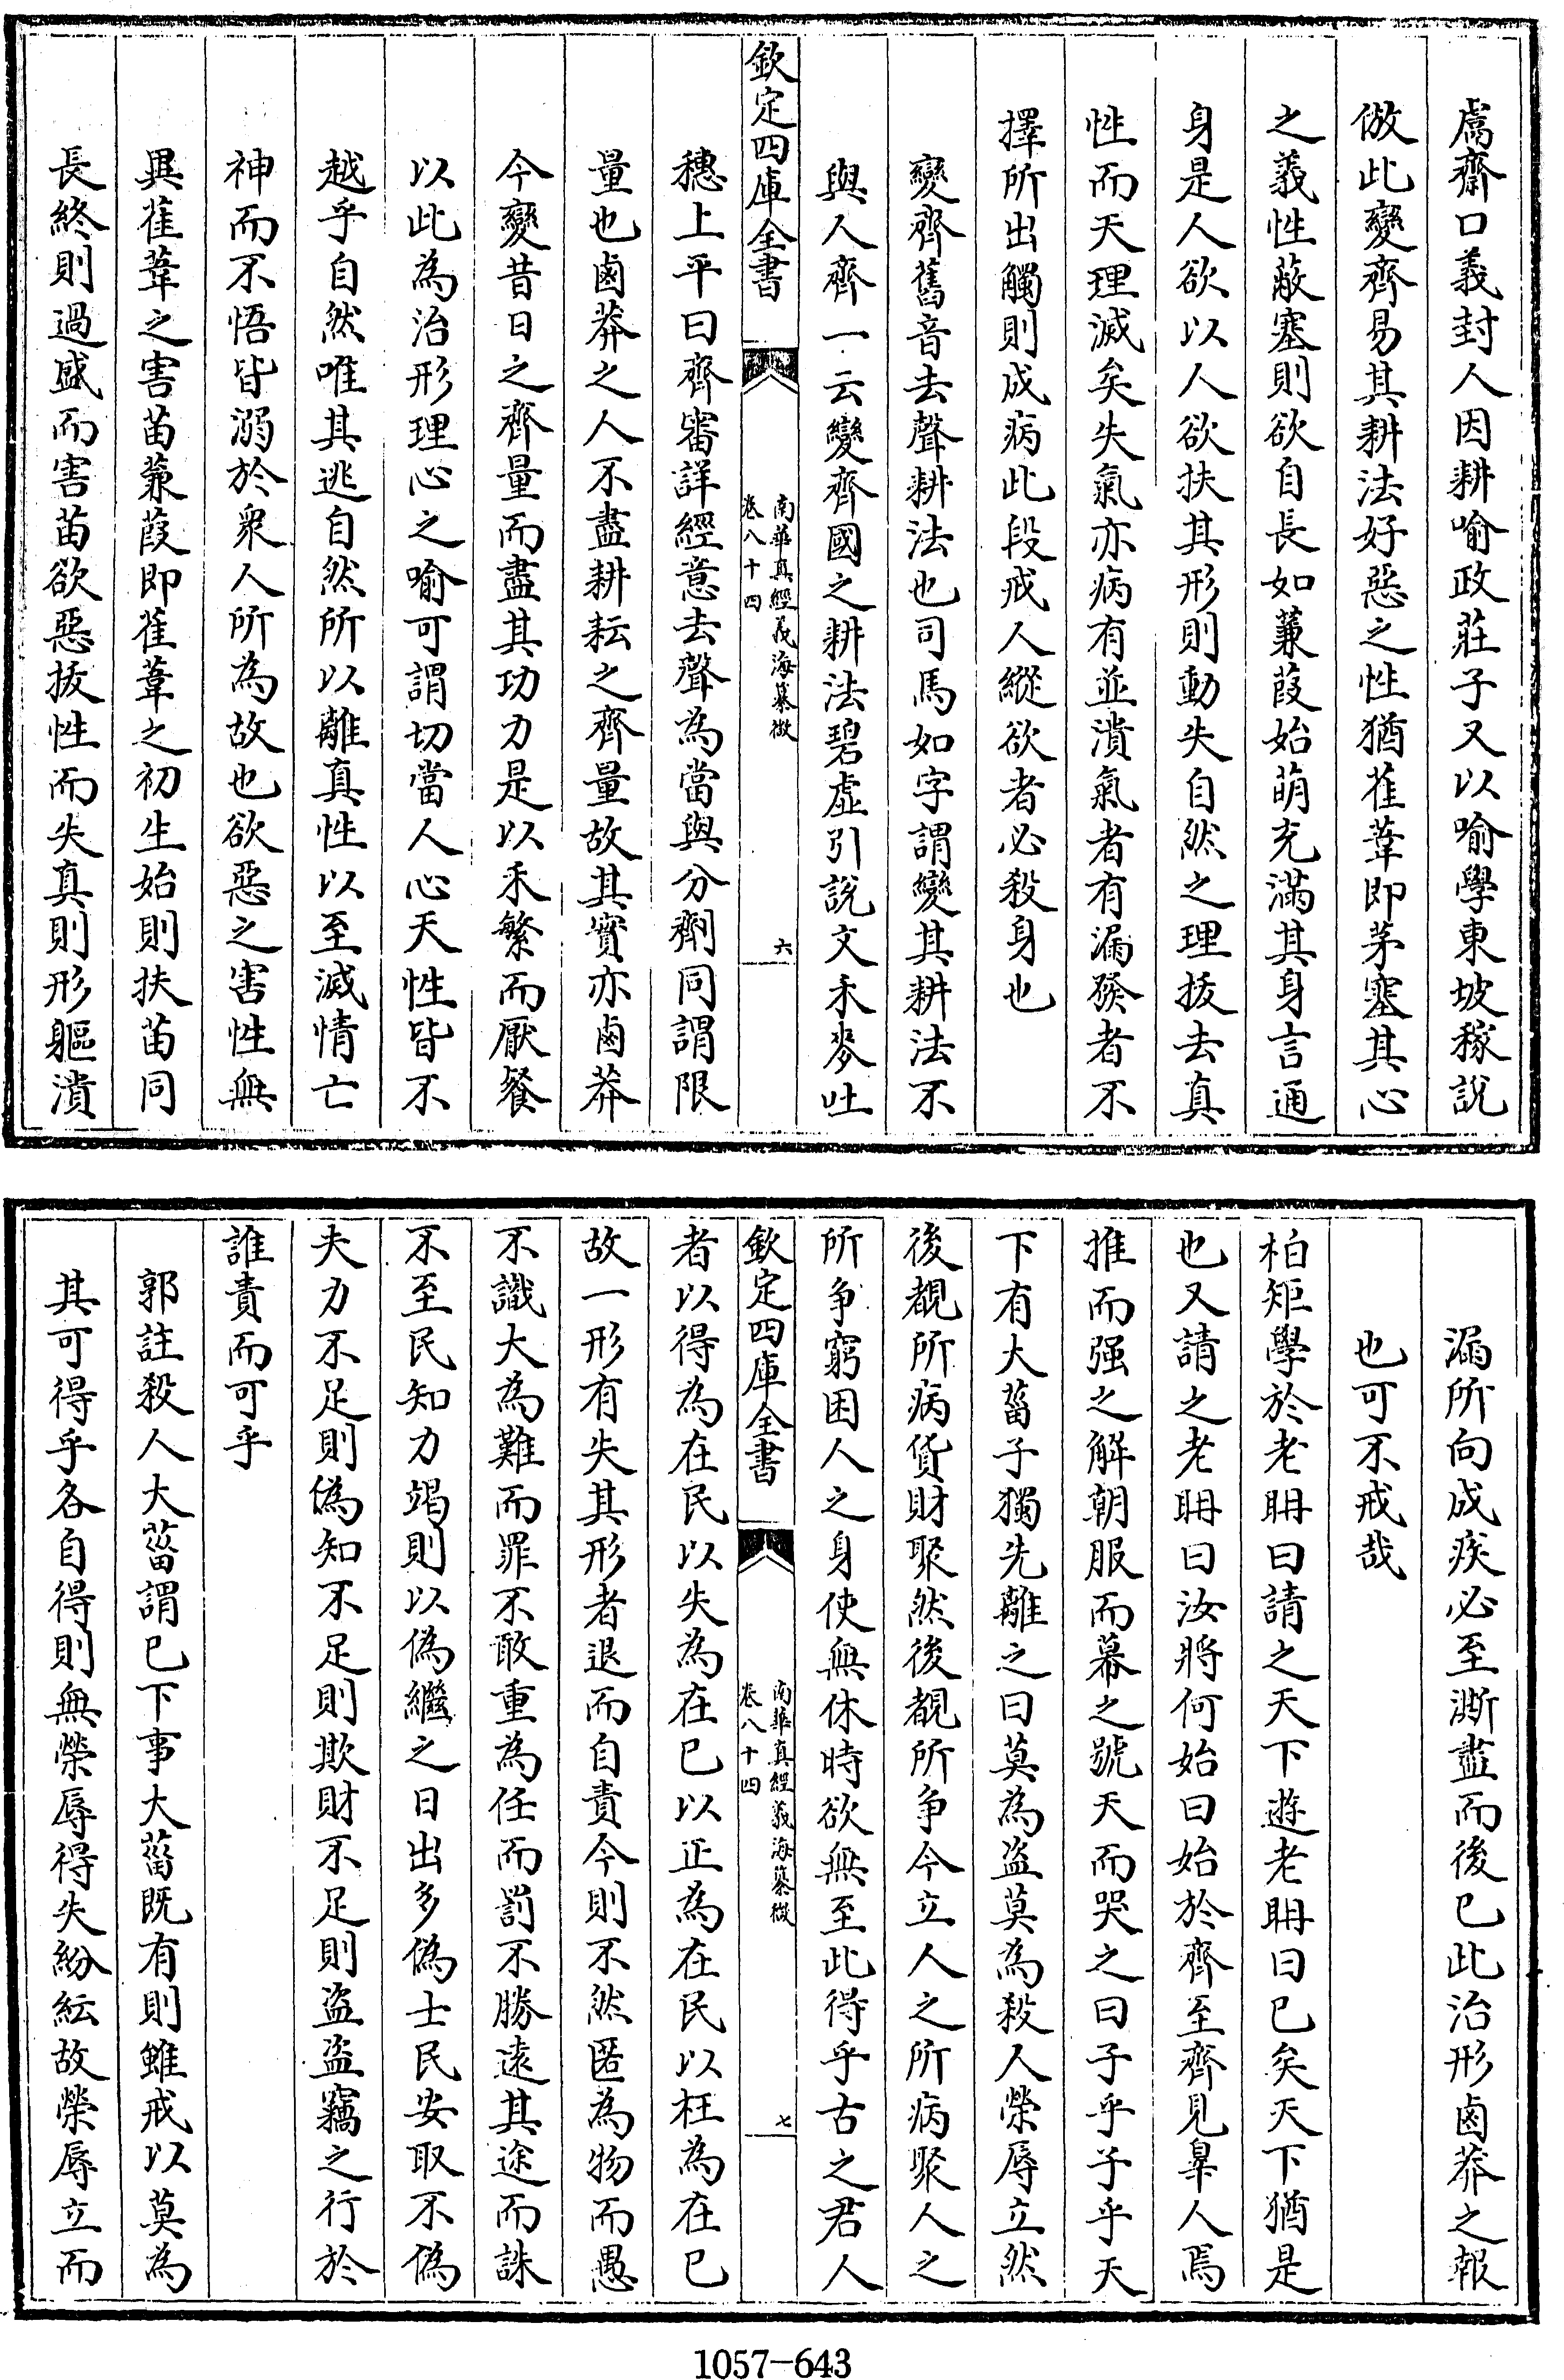 鬳齋口義封人因耕喻政莊子又以喻學東坡稼說
倣此變齊易其耕法好惡之性猶萑葦即茅塞其心
之義性蔽塞則欲自長如蒹葭始萌充滿其身言通
身是人欲以人欲扶其形則動失自然之理拔去真
性而天理滅矣失氣亦病有並潰氣者有漏發者不
擇所出觸則成病此段戒人縱欲者必殺身也
變齊舊音去聲耕法也司馬如字謂變其耕法不
與人齊一云變齊國之耕法碧虛引說文禾麥吐
欽定四庫全書
南華真經義海纂微
卷八十四
六
穗上平曰齊審詳經意去聲為當與分劑同謂限
量也鹵莽之人不盡耕耘之齊量故其實亦鹵莽
今變昔日之齊量而盡其功力是以禾繁而厭餐
以此為治形理心之喻可謂切當人心天性皆不
越乎自然唯其逃自然所以離真性以至滅情亡
神而不悟皆溺於衆人所為故也欲惡之害性無
異萑葦之害苗蒹葭即萑葦之初生始則扶苗同
長終則過盛而害苗欲惡拔性而失真則形軀潰
漏所向成疾必至澌盡而後已此治形鹵莽之報
也可不戒哉
柏矩學於老聃曰請之天下遊老聃曰已矣天下猶是
也又請之老聃曰汝將何始曰始於齊至齊見辠人焉
推而强之解朝服而幕之號天而哭之曰子乎子乎天
下有大菑子獨先離之曰莫為盜莫為殺人榮辱立然
後覩所病貨財聚然後覩所争今立人之所病聚人之
所争窮困人之身使無休時欲無至此得乎古之君人
欽定四庫全書
南華真經義海纂微
卷八十四
七
者以得為在民以失為在已以正為在民以枉為在已
故一形有失其形者退而自責今則不然匿為物而愚
不識大為難而罪不敢重為任而罰不勝遠其途而誅
不至民知力竭則以偽繼之日出多偽士民安取不偽
夫力不足則偽知不足則欺財不足則盜盜竊之行於
誰責而可乎
郭註殺人大菑謂已下事大菑既有則雖戒以莫為
其可得乎各自得則無榮辱得失紛紜故榮辱立而
1057-643